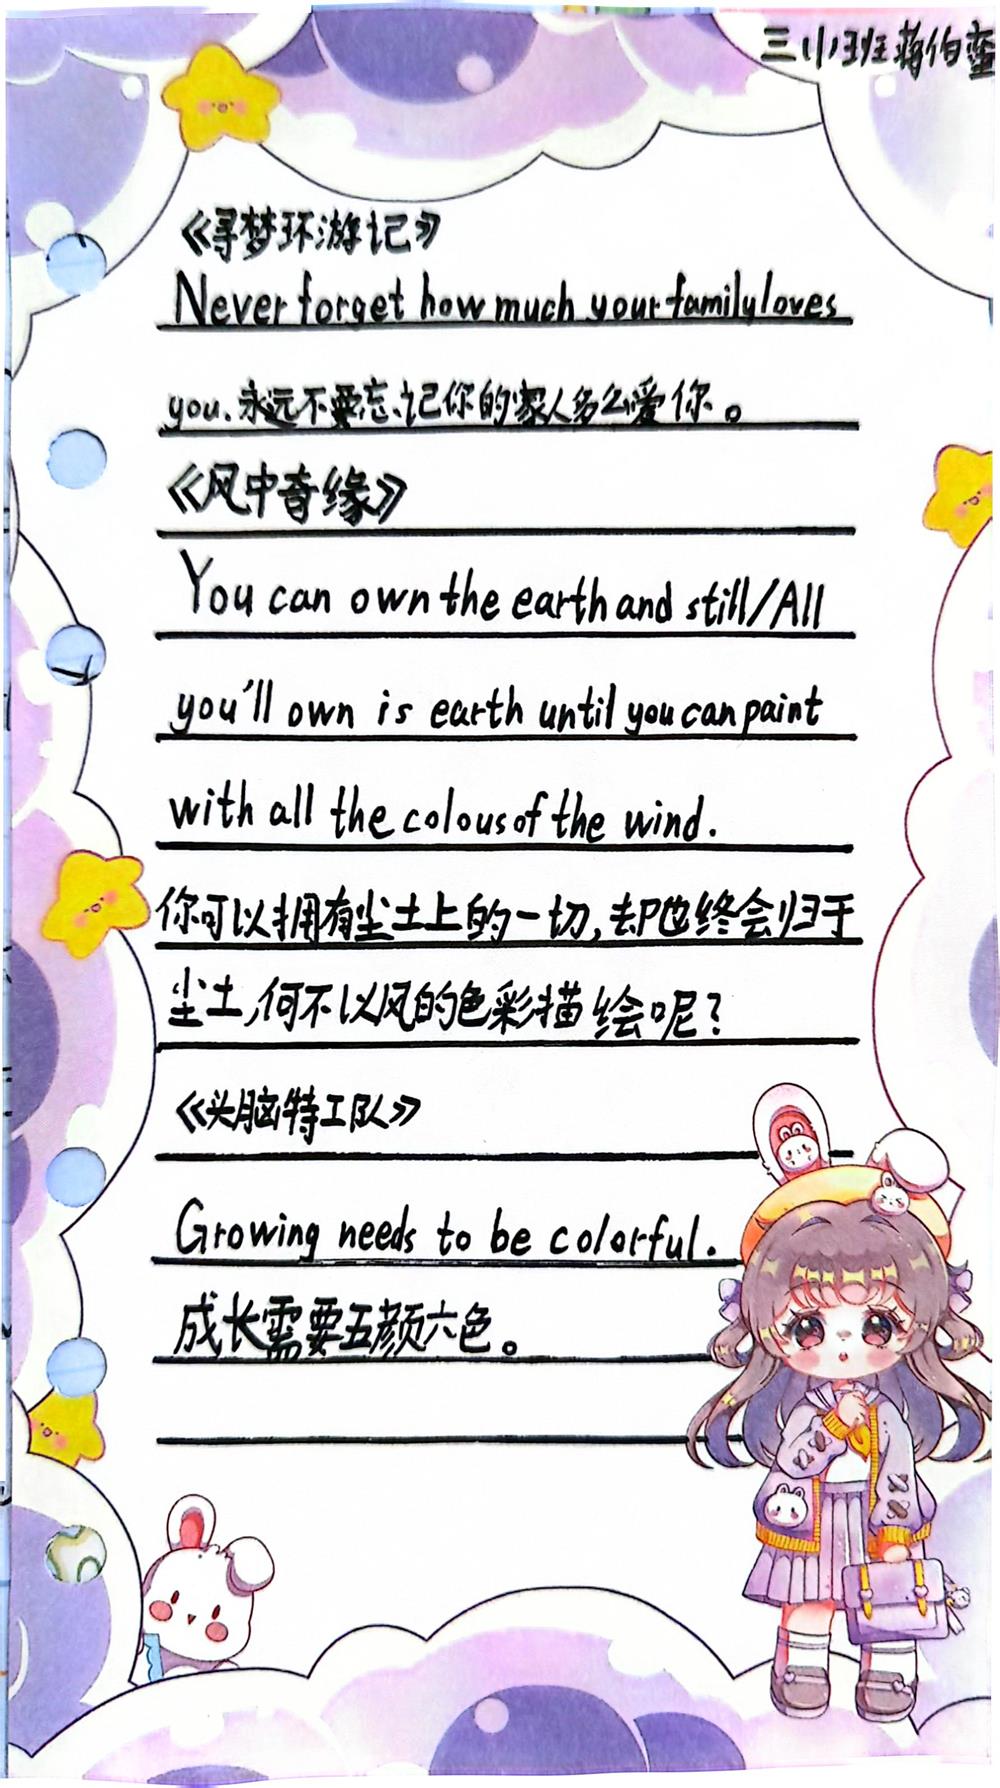 三小班蒋伯蛮
《寻梦环游记》
Never forget how much your family loves
you.永远不要忘记你的家人多么爱你。
《风中奇缘》
You can own the earth and still/All
you'll own is earth until you can paint
with all the colous of the wind.
你可以拥有尘土上的一切,却也终会归于
尘土,何不以风的色彩描绘呢?
《头脑特工队》
Growing needs to be colorful.
成长需要五颜六色。